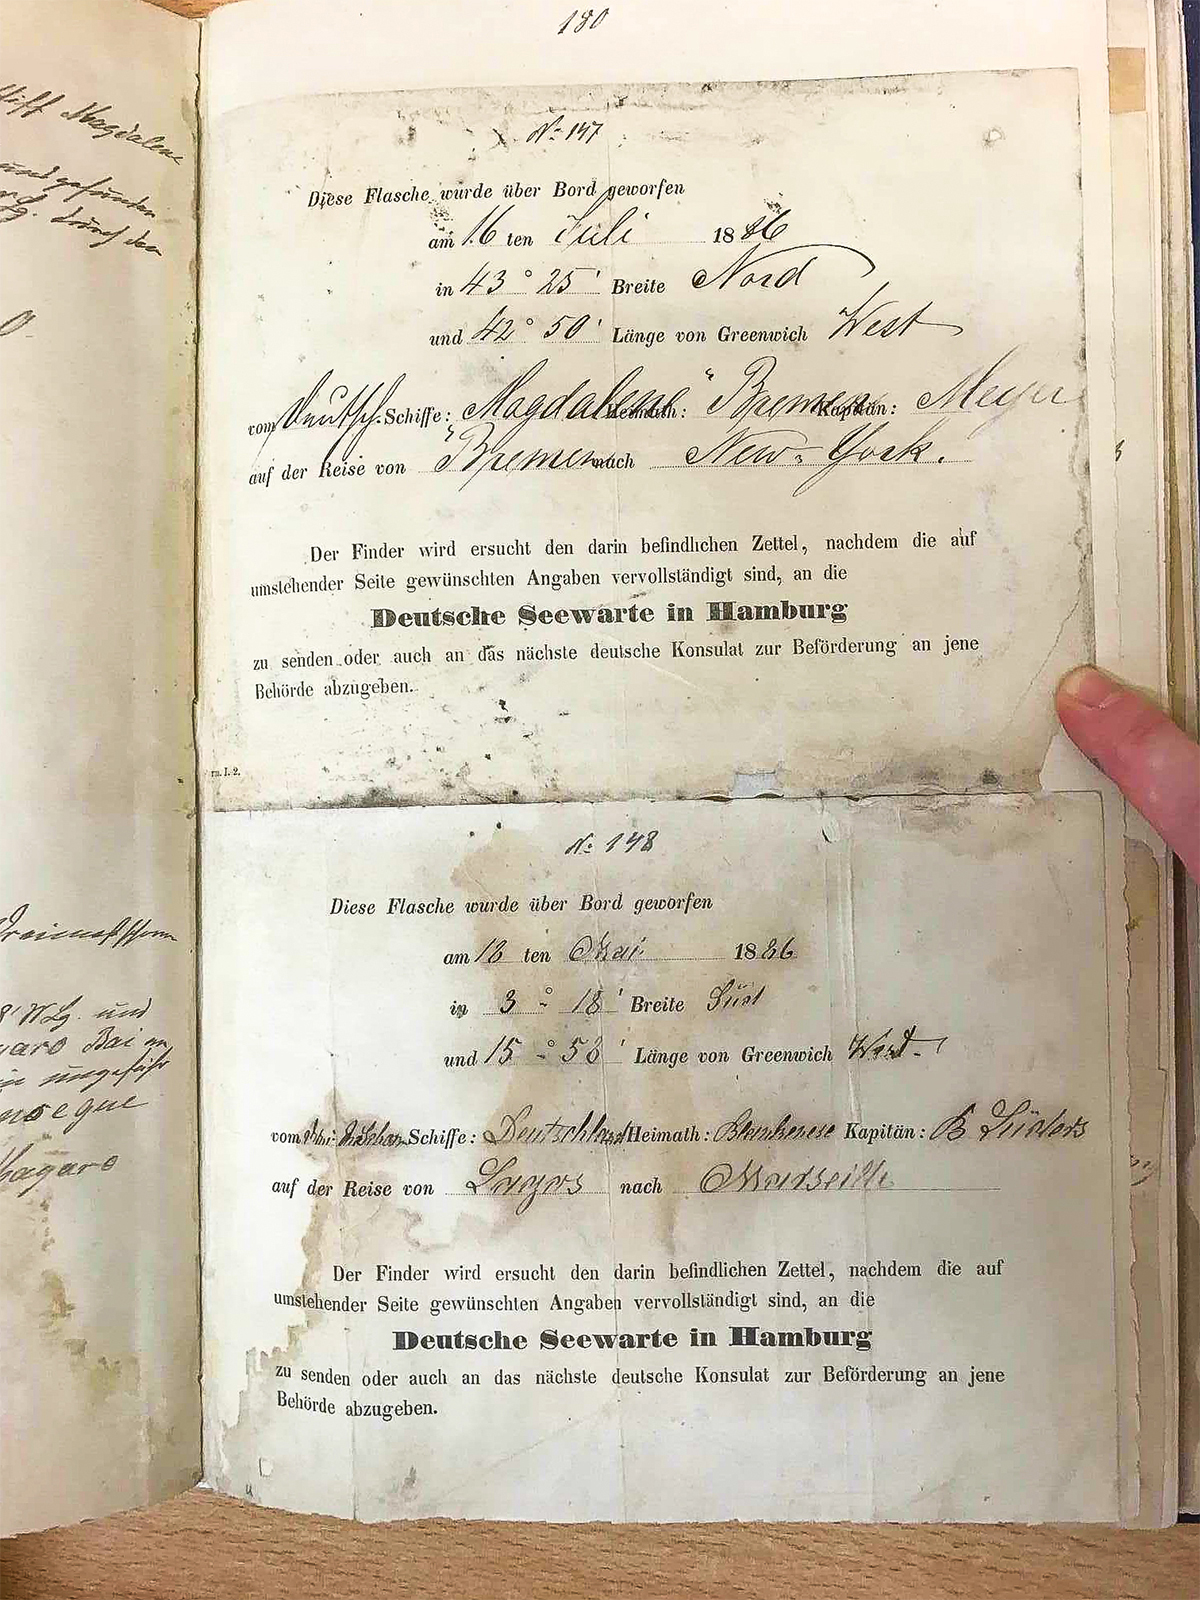 Magdalene
und gefunden
durch den
Dreimastschoner
und
Bai
ungefähr
180
No 147
Diese Flasche wurde über Bord geworfen
am 16 ten Juli 1886
in 43 ° 25 ' Breite Nord
und 42 ° 50 ' Länge von Greenwich West
vom deutsch. Schiffe: "Magdalene" Heimath: Bremen Kapitän: Meyer
auf der Reise von Bremen nach New-York.
Der Finder wird ersucht den darin befindlichen Zettel, nachdem die auf
umstehender Seite gewünschten Angaben vervollständigt sind, an die
Deutsche Seewarte in Hamburg
zu senden oder auch an das nächste deutsche Konsulat zur Beförderung an jene
Behörde abzugeben.
I. 2.
No 148
Diese Flasche wurde über Bord geworfen
am 18 ten Mai 1886
in 3 ° 18 ' Breite Süd
und 15 ° 58 ' Länge von Greenwich West
vom Schiffe: Deutschland Heimath: Blankenese Kapitän: B Lüders
auf der Reise von Lagos nach Marseille
Der Finder wird ersucht den darin befindlichen Zettel, nachdem die auf
umstehender Seite gewünschten Angaben vervollständigt sind, an die
Deutsche Seewarte in Hamburg
zu senden oder auch an das nächste deutsche Konsulat zur Beförderung an jene
Behörde abzugeben.